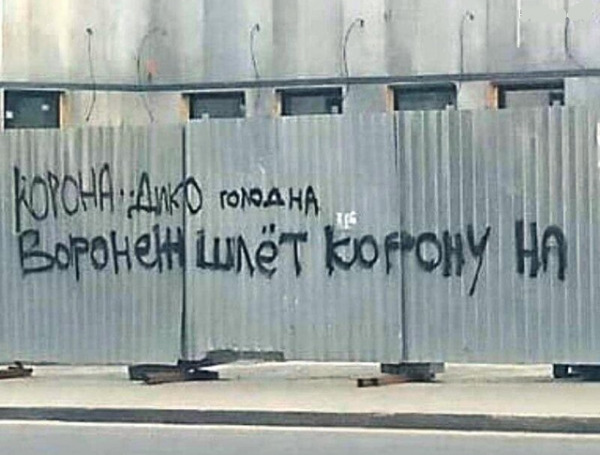 КОРОНА·:ДИКО ГОЛОДНА
ВОРОНЕЖ ШЛЁТ КОРОНУ НА